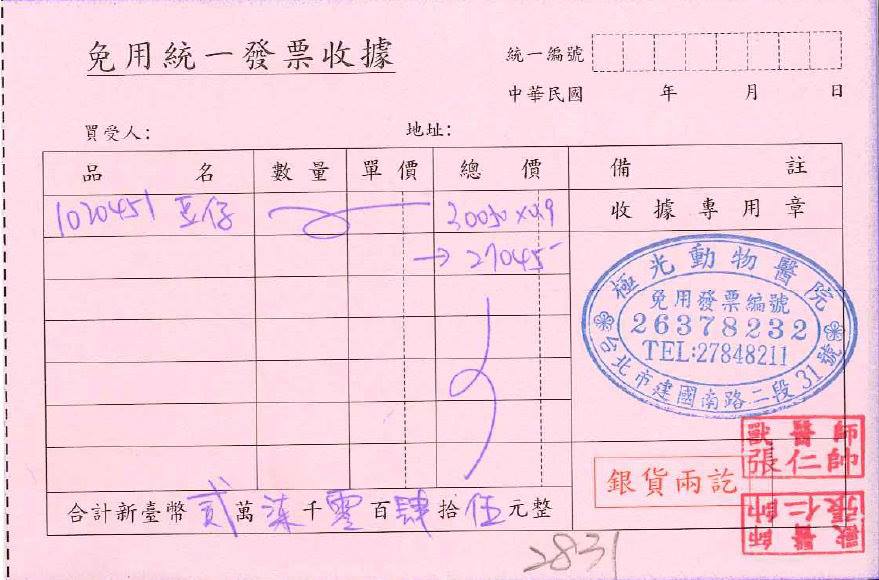 免用統一發票收據
統一編號
中華民國 年 月 日
買受人: 地址:
品名 數量 單價 總價 備註
1020451 豆仔 30050 x 0.9 收據專用章
→ 27045
極光動物醫院
免用發票編號
26378232
TEL:27848211
台北市建國南路二段31號
獸醫師
張仁帥
銀貨兩訖
獸醫師
張仁帥
合計新臺幣貳萬柒千零百肆拾伍元整
2831